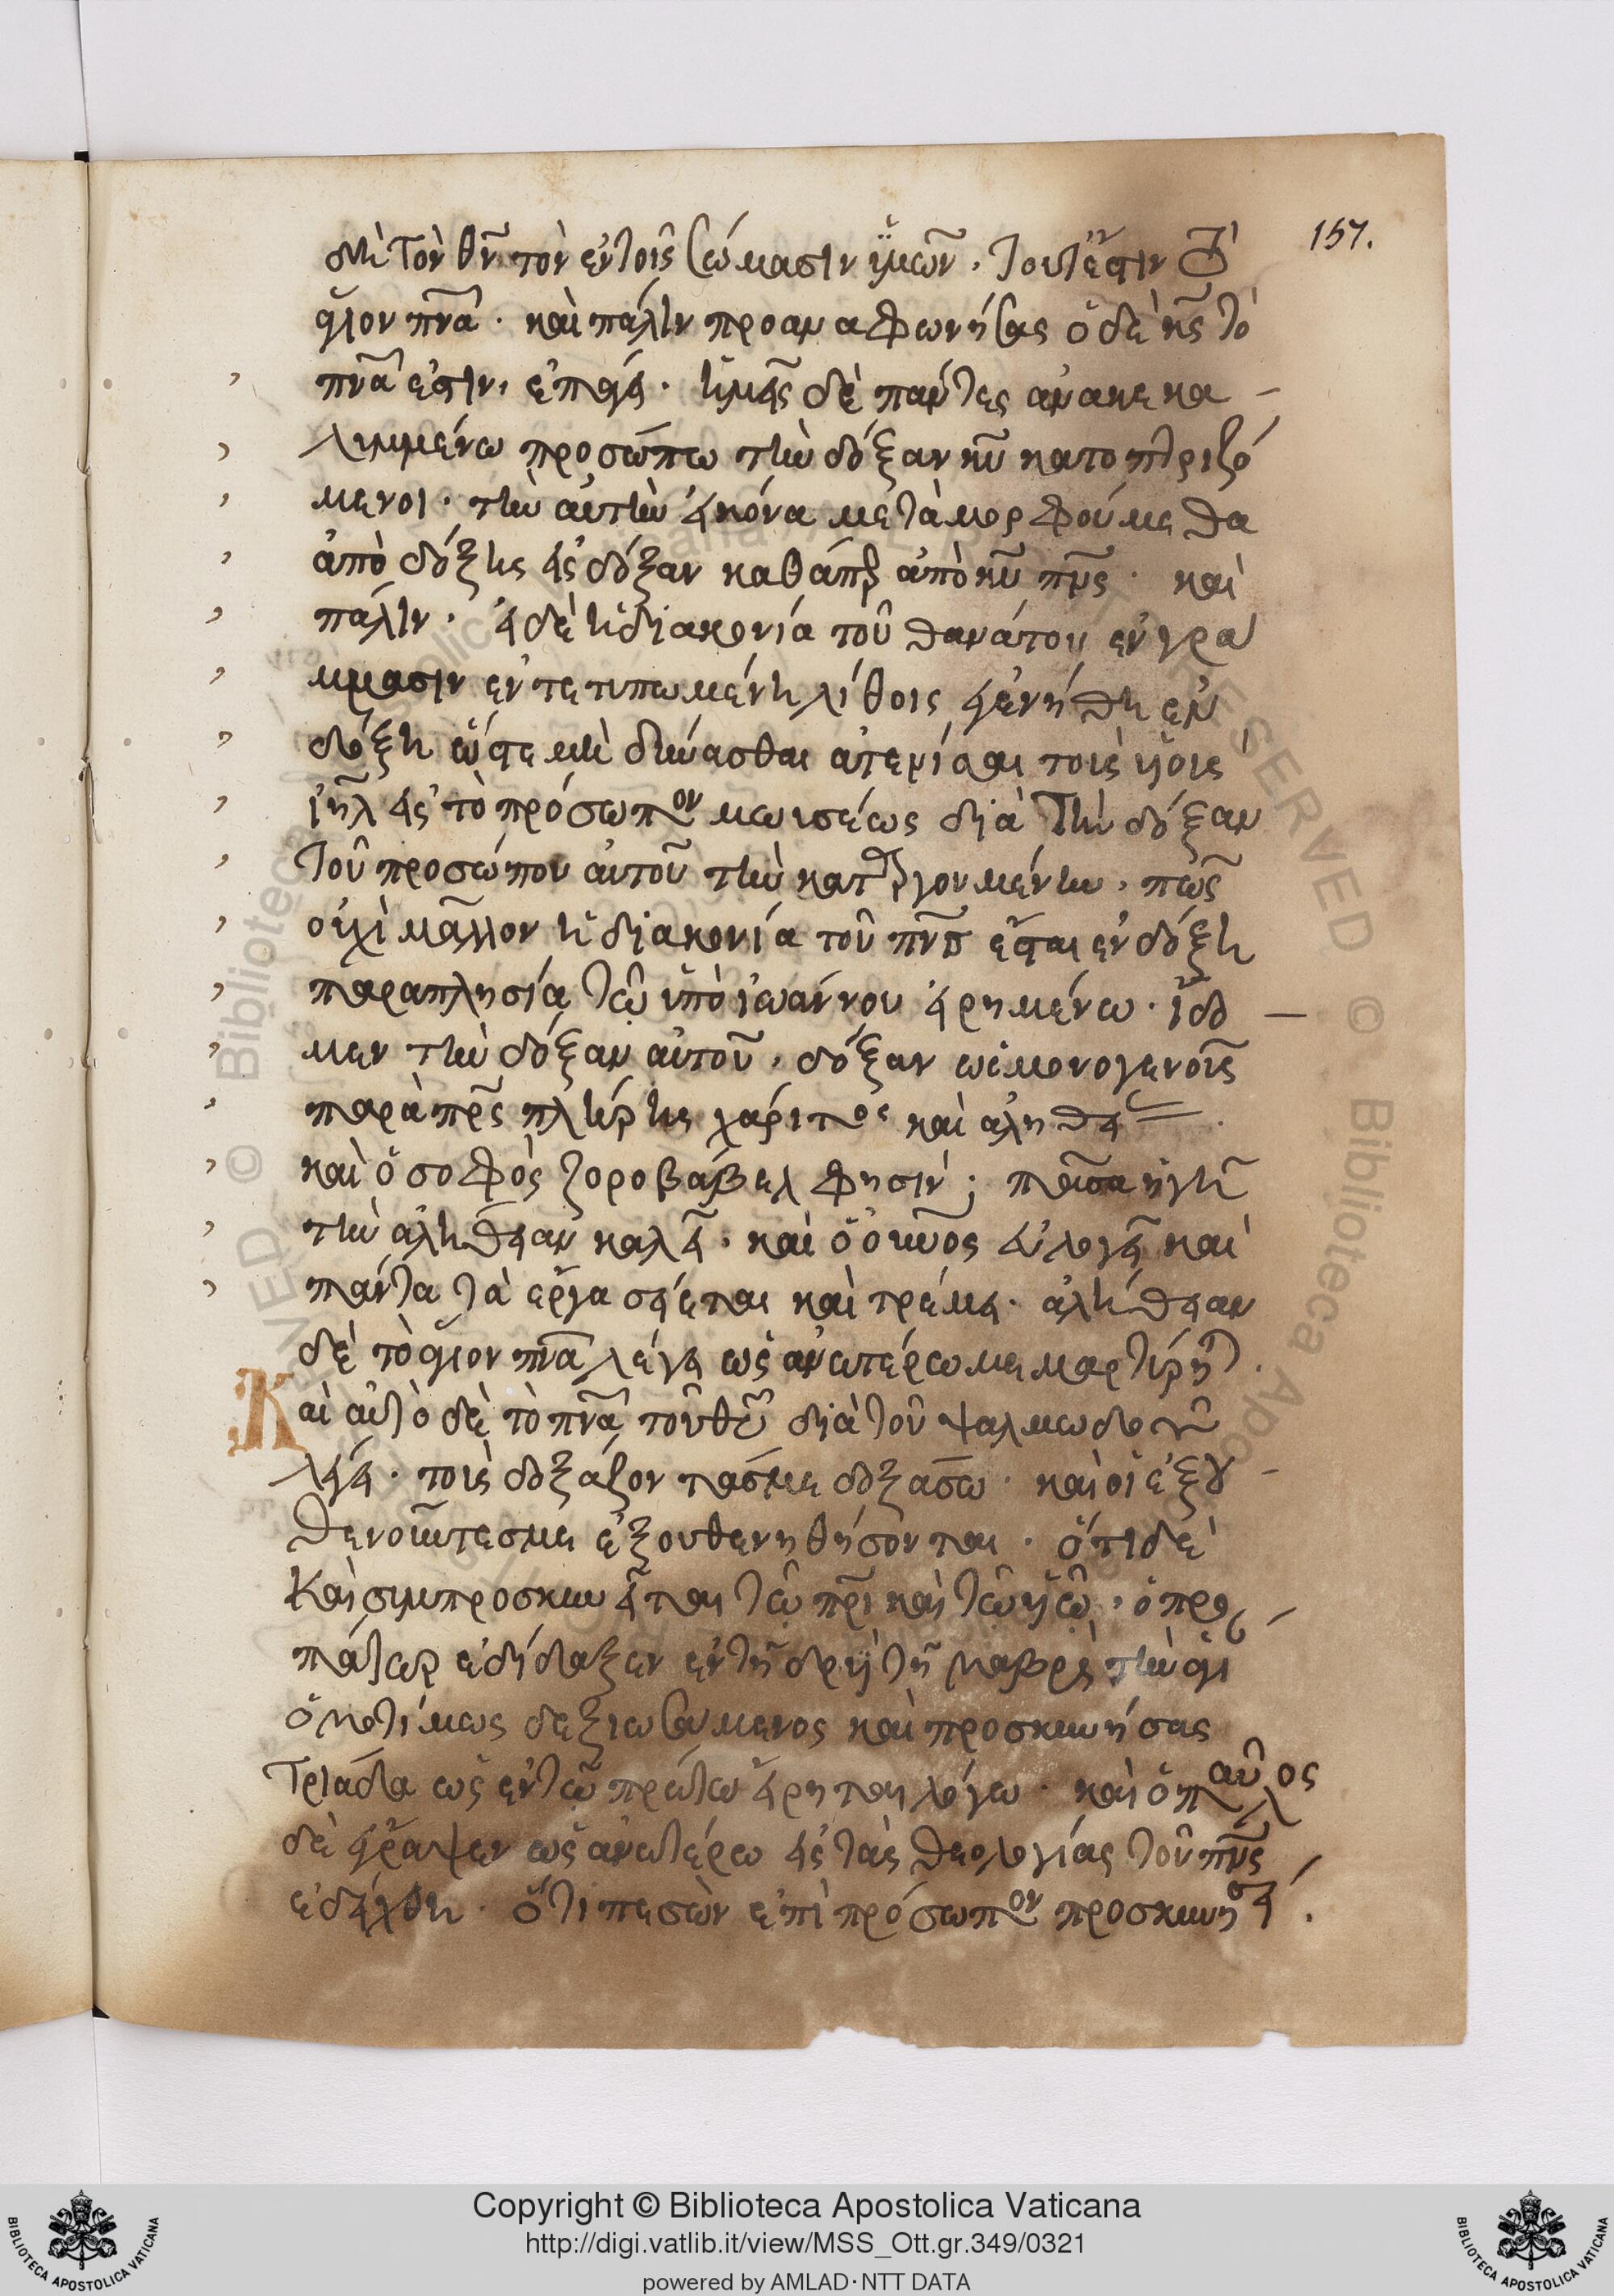 157.
δὴ τὸν θν̅ τὸν ἐν τοῖς σώμασιν ὑμῶν, τουτέστιν τὸ
ἅγιον πνα̅· καὶ πάλιν προαναφωνήσας ὁ δὲ κς̅ τὸ
πνα̅ ἐστιν, ἐπάγει· ἡμεῖς δὲ πάντες ἀνακεκα-
λυμμένω προσώπω τὴν δόξαν κυ̅ κατοπτριζό
μενοι· τὴν αὐτὴν εἰκόνα μεταμορφούμεθα
ἀπὸ δόξης εἰς δόξαν καθάπερ ἀπὸ κυ̅ πνς̅· καὶ
πάλιν· εἰ δὲ ἡ διακονία τοῦ θανάτου ἐν γρα
μμασιν ἐντετυπωμένη λίθοις ἐγενήθη ἐν
δόξη ὥστε μὴ δύνασθαι ἀτενίσαι τοὺς υἱοὺς
ιηλ̅ εἰς τὸ πρόσωπον μωυσέως διὰ τὴν δόξαν
τοῦ προσώπου αὐτοῦ τὴν καταργουμένην, πῶς
οὐχὶ μᾶλλον ἡ διακονία τοῦ πνς̅ ἔσται ἐν δόξη
παραπλησία τῶ ὑπὸ ἰωάννου εἰρημένω· ἴδο —
μεν τὴν δόξαν αὐτοῦ, δόξαν ὡς μονογενοῦς
παρὰ πρς̅ πλήρης χάριτος καὶ ἀληθείας.
καὶ ὁ σοφὸς ζοροβάβελ φησίν; πᾶσα ἡ γῆ
τὴν ἀλήθειαν καλεῖ· καὶ ὁ οὐνος̅ εὐλογεῖ καὶ
πάντα τὰ ἔργα σείεται καὶ τρέμει· ἀλήθειαν
δὲ τὸ ἅγιον πνα̅ λέγει ὡς ἀνωτέρω μεμαρτύρηται.
Καὶ αὐτὸ δὲ τὸ πνα̅ τοῦ θυ̅ διὰ τοῦ ψαλμωδοῦ
λέγει· τοὺς δοξάζοντάς με δοξάσω· καὶ οἱ ἐξου-
θενοῦντές με ἐξουθενηθήσονται· ὅτι δὲ
καὶ συμπροσκυνεῖται τῶ πρι̅ καὶ τῶ υἱῶ, ὁ προ-
πάτωρ ἐδίδαξεν ἐν τῆ δρυῒ τῆ μαβρὲ τὴν ἁγι
ὁμοτίμως δεξιωσάμενος καὶ προσκυνήσας
τριάδα ὡς ἐν τῶ πρώτω εἴρηται λόγω· καὶ ὁ παῦλος
δὲ ἔγραψεν ὡς ἀνωτέρω εἰς τὰς θεολογίας τοῦ πνς̅
ἐδείχθη· ὅτι πεσὼν ἐπὶ πρόσωπον προσκυνήσει.
Copyright © Biblioteca Apostolica Vaticana
http://digi.vatlib.it/view/MSS_Ott.gr.349/0321
powered by AMLAD·NTT DATA
BIBLIOTECA APOSTOLICA VATICANA
BIBLIOTECA APOSTOLICA VATICANA